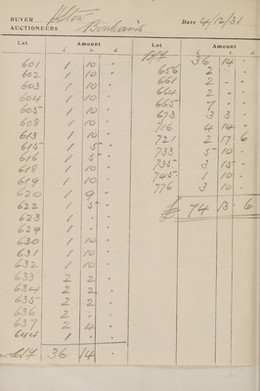 BUYER
AUCTIONEERS
Date 4/12/31
Lot Amount
£ s d
601 1 10 "
602 1 10 "
603 1 10 "
604 1 10 "
605 1 10 "
608 1 10 "
613 1 10 "
615 1 5 "
616 1 5 "
618 1 10 "
619 1 10 "
620 1 9 "
622 1 5 "
623 1 " "
629 1 " "
630 1 10 "
631 1 10 "
632 1 10 "
633 2 2 "
634 2 2 "
635 2 2 "
636 2 " "
637 2 4 "
644 1 " "
36 14 "
Lot Amount
£ s d
36 14 "
656 2 " "
661 2 " "
664 2 " "
665 7 " "
673 3 3 "
716 4 14 "
721 2 17 6
733 5 10 "
735 3 15 "
745 1 10 "
776 3 10 "
£ 74 13 6